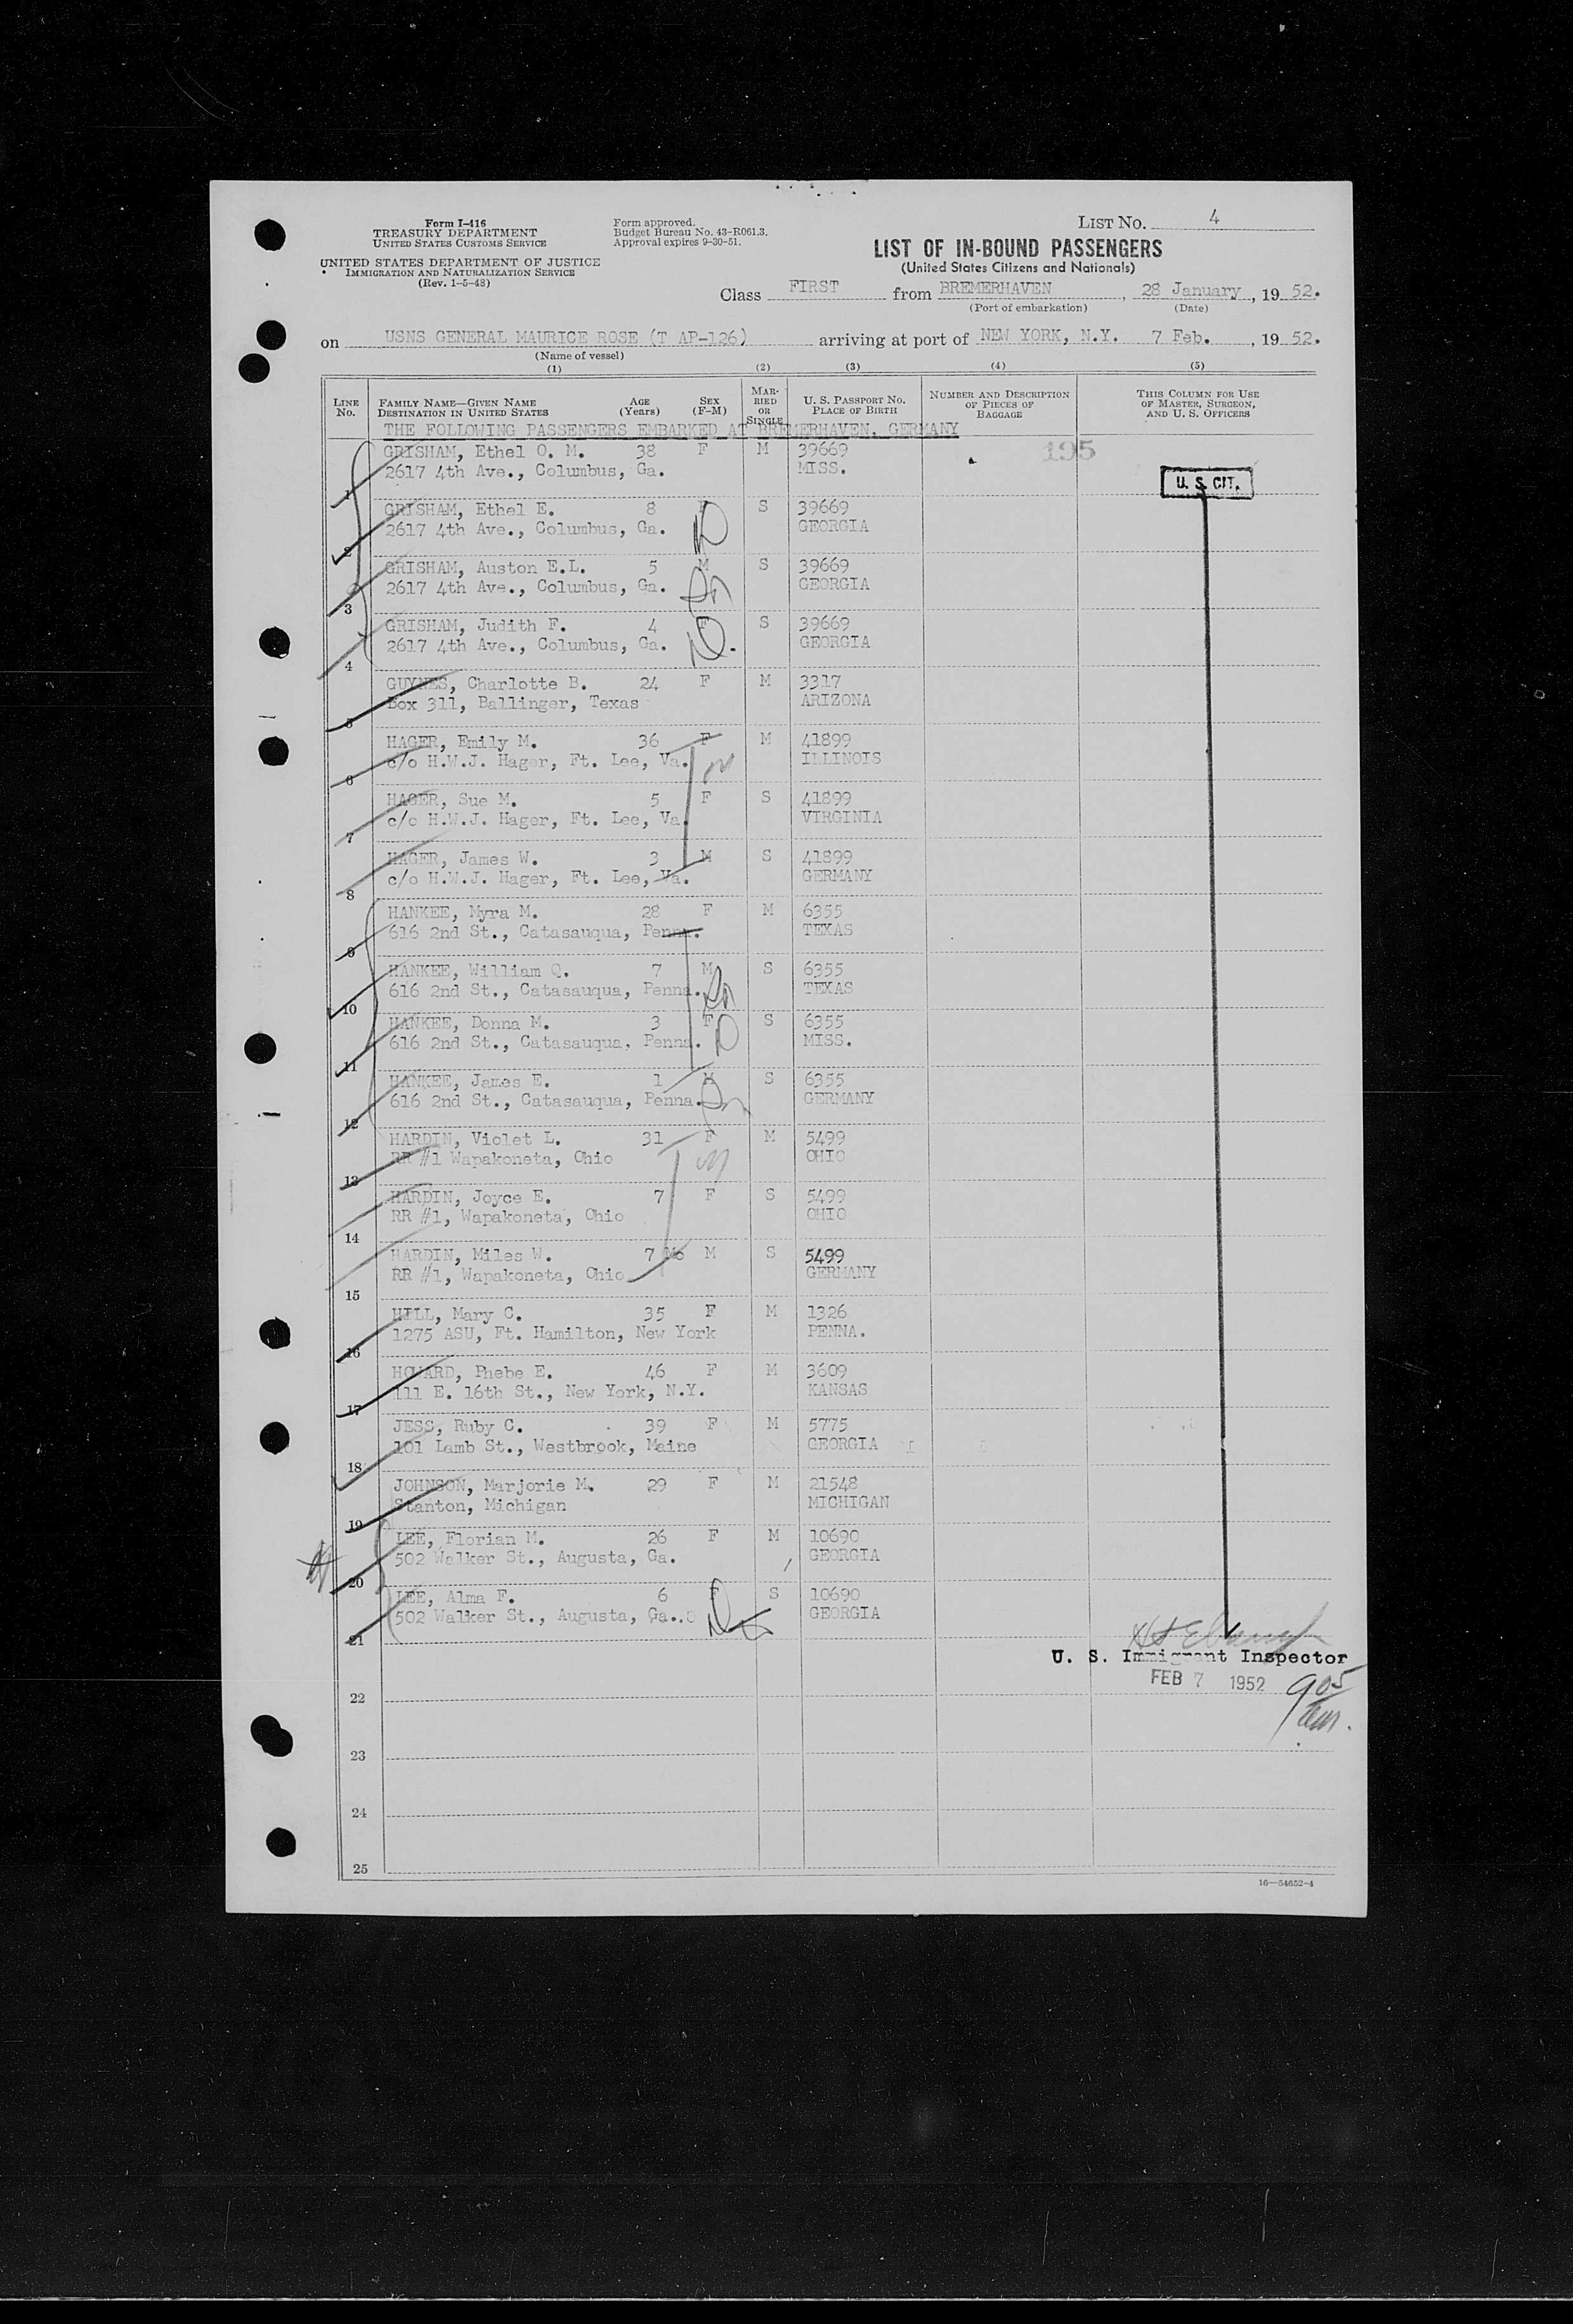 Form I-416
TREASURY DEPARTMENT
UNITED STATES CUSTOMS SERVICE
UNITED STATES DEPARTMENT OF JUSTICE
IMMIGRATION AND NATURALIZATION SERVICE
(Rev. 1-5-48)
Form approved.
Budget Bureau No. 43-R061.3.
Approval expires 9-30-51.
LIST NO. 4
LIST OF IN-BOUND PASSENGERS
(United States Citizens and Nationals)
Class FIRST from BREMERHAVEN, 28 January, 19 52.
(Port of embarkation) (Date)
on USNS GENERAL MAURICE ROSE (T AP-126) arriving at port of NEW YORK, N.Y. 7 Feb., 19 52.
(Name of vessel)
(1) (2) (3) (4) (5)
LINE NO. FAMILY NAME—GIVEN NAME DESTINATION IN UNITED STATES AGE (Years) SEX (F-M) MARRIED OR SINGLE U. S. PASSPORT NO. PLACE OF BIRTH NUMBER AND DESCRIPTION OF PIECES OF BAGGAGE THIS COLUMN FOR USE OF MASTER, SURGEON, AND U. S. OFFICERS
THE FOLLOWING PASSENGERS EMBARKED AT BREMERHAVEN, GERMANY
GRISHAM, Ethel O. M. 38 F M 39669 195
2617 4th Ave., Columbus, Ga. MISS.
U. S. CIT.
1
GRISHAM, Ethel E. 8 F S 39669
2617 4th Ave., Columbus, Ga. GEORGIA
2
GRISHAM, Auston E.L. 5 M S 39669
2617 4th Ave., Columbus, Ga. GEORGIA
3
GRISHAM, Judith F. 4 F S 39669
2617 4th Ave., Columbus, Ga. GEORGIA
4
GUYNES, Charlotte B. 24 F M 3317
Box 311, Ballinger, Texas ARIZONA
5
HAGER, Emily M. 36 F M 41899
c/o H.W.J. Hager, Ft. Lee, Va. ILLINOIS
6
HAGER, Sue M. 5 F S 41899
c/o H.W.J. Hager, Ft. Lee, Va. VIRGINIA
7
HAGER, James W. 3 M S 41899
c/o H.W.J. Hager, Ft. Lee, Va. GERMANY
8
HANKEE, Myra M. 28 F M 6355
616 2nd St., Catasauqua, Penna. TEXAS
9
HANKEE, William Q. 7 M S 6355
616 2nd St., Catasauqua, Penna. TEXAS
10
HANKEE, Donna M. 3 F S 6355
616 2nd St., Catasauqua, Penna. MISS.
11
HANKEE, James E. 1 M S 6355
616 2nd St., Catasauqua, Penna. GERMANY
12
HARDIN, Violet L. 31 F M 5499
RR #1 Wapakoneta, Ohio OHIO
13
HARDIN, Joyce E. 7 F S 5499
RR #1, Wapakoneta, Ohio OHIO
14
HARDIN, Miles W. 7 Mo M S 5499
RR #1, Wapakoneta, Ohio GERMANY
15
HILL, Mary C. 35 F M 1326
1275 ASU, Ft. Hamilton, New York PENNA.
16
HOWARD, Phebe E. 46 F M 3609
111 E. 16th St., New York, N.Y. KANSAS
17
JESS, Ruby C. 39 F M 5775
101 Lamb St., Westbrook, Maine GEORGIA
18
JOHNSON, Marjorie M. 29 F M 21548
Stanton, Michigan MICHIGAN
19
LEE, Florian M. 26 F M 10690
502 Walker St., Augusta, Ga. GEORGIA
20
LEE, Alma F. 6 F S 10690
502 Walker St., Augusta, Ga. GEORGIA
21
U. S. Immigrant Inspector
FEB 7 1952
905
22
23
24
25
16—54652-4